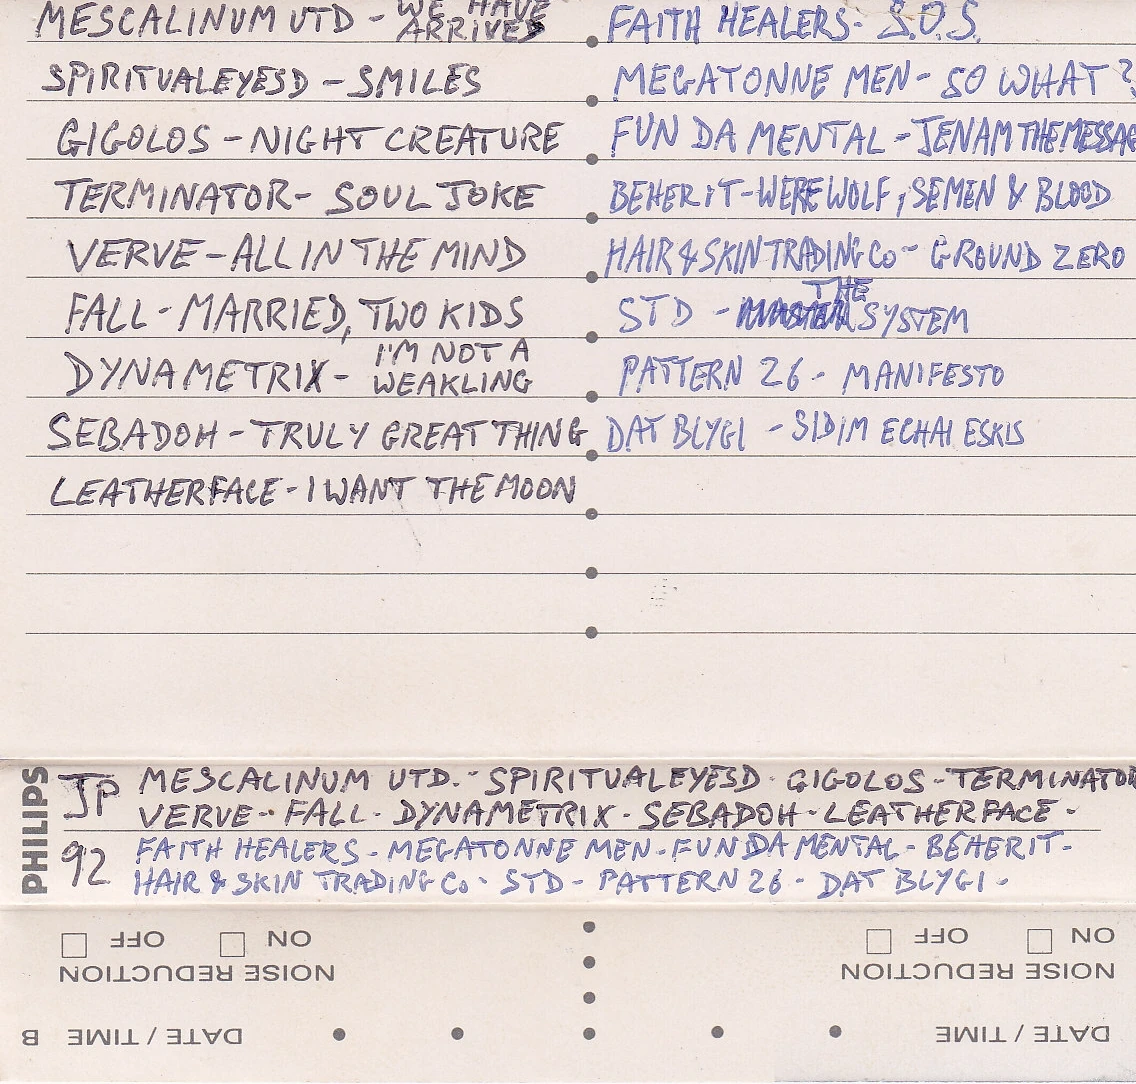 MESCALINUM UTD - WE HAVE ARRIVED
SPIRITUALEYESD - SMILES
GIGOLOS - NIGHT CREATURE
TERMINATOR - SOUL JOKE
VERVE - ALL IN THE MIND
FALL - MARRIED, TWO KIDS
DYNAMETRIX - I'M NOT A WEAKLING
SEBADOH - TRULY GREAT THING
LEATHERFACE - I WANT THE MOON
FAITH HEALERS - S.O.S.
MEGATONNE MEN - SO WHAT?
FUN DA MENTAL - JENAM THE MESSAG
BEHERIT - WEREWOLF, SEMEN & BLOOD
HAIR & SKIN TRADING Co - GROUND ZERO
STD - THE SYSTEM
PATTERN 26 - MANIFESTO
DAT BLYGI - SIDIM ECHAI ESKIS
PHILIPS
JP
92
MESCALINUM UTD. - SPIRITUALEYESD - GIGOLOS - TERMINATOR
VERVE - FALL - DYNAMETRIX - SEBADOH - LEATHERFACE -
FAITH HEALERS - MEGATONNE MEN - FUN DA MENTAL - BEHERIT -
HAIR & SKIN TRADING Co - STD - PATTERN 26 - DAT BLYGI -
ON OFF
NOISE REDUCTION
DATE / TIME
ON OFF
NOISE REDUCTION
DATE / TIME B